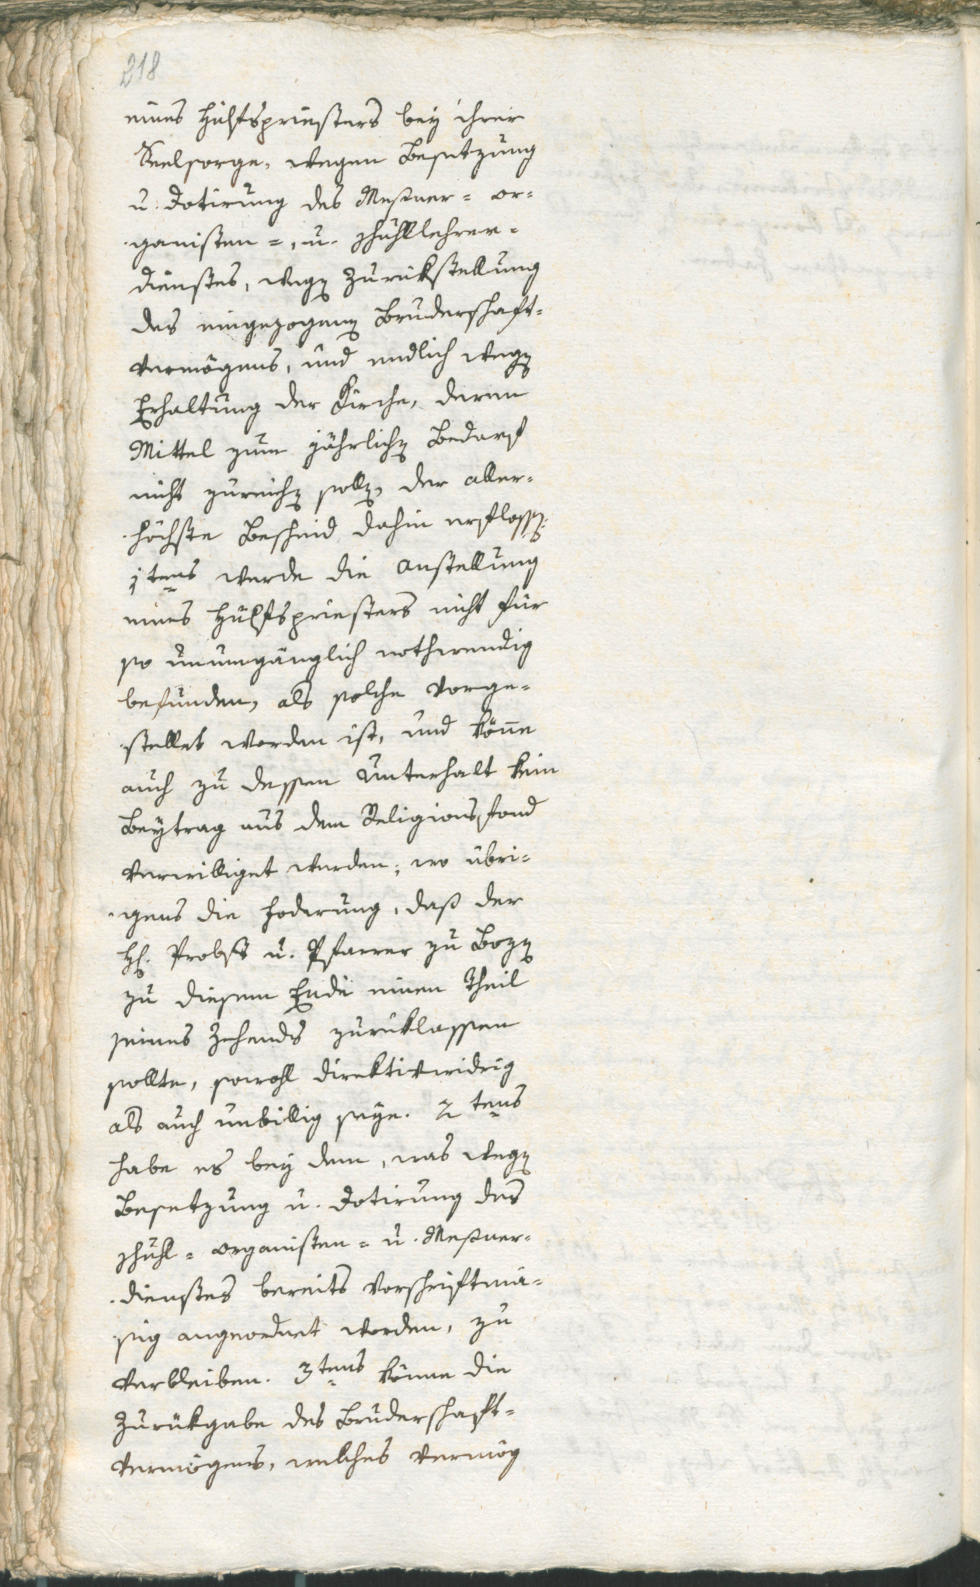 218
eines Hülfspriesters bey ihrer
Seelsorge, wegen Besetzung
u. Dotirung des Meßner= Or=
ganisten=, u. Schullehrer=
dienstes, wegen Zurükstellung
des eingezogenen Bruderschaft=
vermögens, und endlich wegen
Erhaltung der Kirche, deren
Mittel zum jährlichen Bedarf
nicht zureichen sollen, der aller=
höchste Bescheid dahin erflossen:
1tens werde die Anstellung
eines Hülfspriesters nicht für
so unumgänglich nothwendig
befunden, als solche vorge=
stellet worden ist, und könne
auch zu dessen Unterhalt kein
Beytrag aus dem Religionsfond
verwilliget werden; wo übri=
gens die Foderung, daß der
H. Probst u. Pfarrer zu Bozen
zu diesem Ende einen Theil
seines Zehends zurüklassen
sollte, sowohl direktivwidrig
als auch unbillig seye. 2tens
habe es bey dem, was wegen
Besetzung u. Dotirung des
Schul= Organisten= u. Meßner=
dienstes bereits vorschriftmä=
ßig angeordnet worden, zu
verbleiben. 3tens könne die
Zurükgabe des Bruderschaft=
vermögens, welches vermög